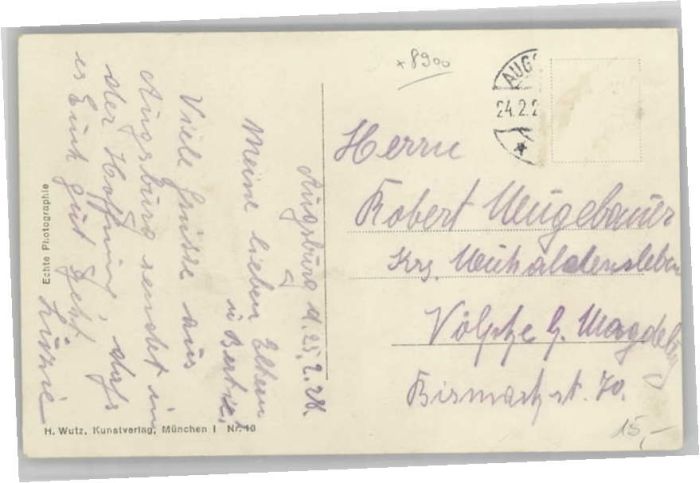 × 8900
AUGS
24.2.2
Herrn
Robert Neugebauer
Krs. Neuhaldensleben
Völpke b. Magdebg
Bismarkst. 70.
15,-
Augsburg d. 25.2.28.
Meine lieben Eltern
u Bertie!
Viele Grüsse aus
Augsburg sendet in
der Hoffnung, dass
es Euch gut geht
Echte Photographie
H. Wutz, Kunstverlag, München I Nr. 40